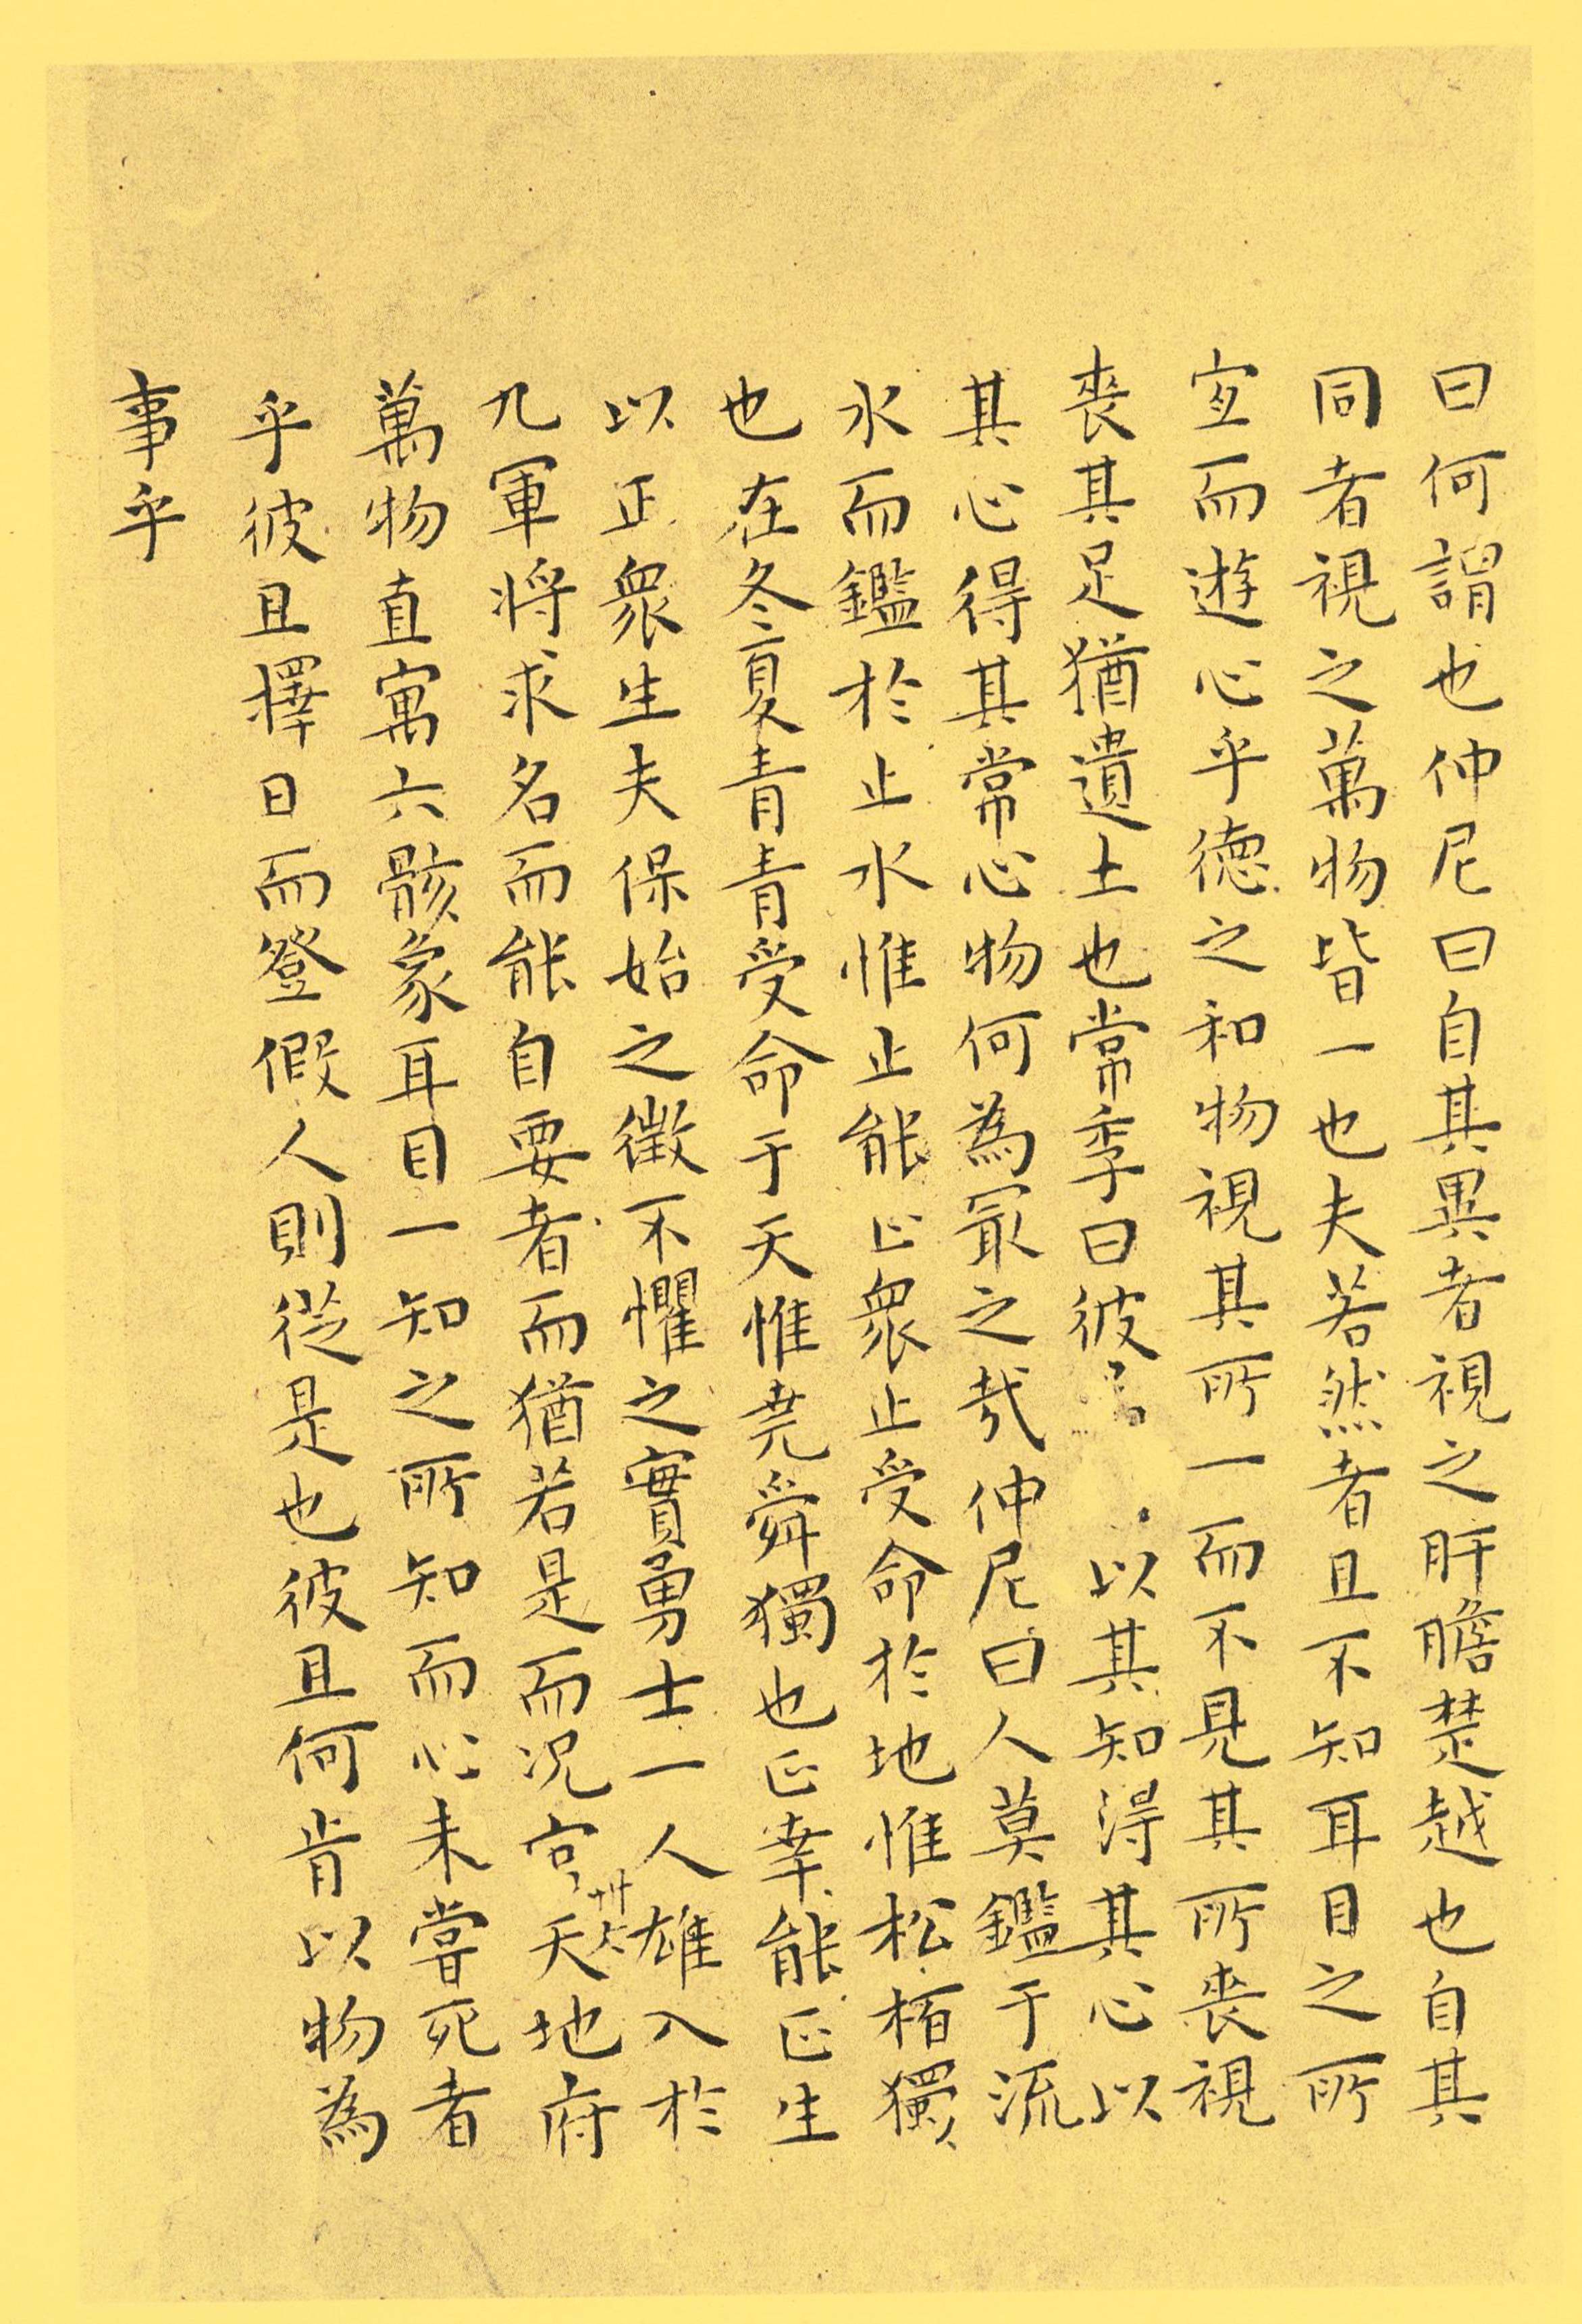 曰何謂也仲尼曰自其異者視之肝膽楚越也自其
同者視之萬物皆一也夫若然者且不知耳目之所
宜而遊心乎德之和物視其所一而不見其所喪視
喪其足猶遺土也常季曰彼以其知得其心以
其心得其常心物何為最之哉仲尼曰人莫鑑于流
水而鑑於止水惟止能止眾止受命於地惟松栢獨
也在冬夏青青受命于天惟堯舜獨也正幸能正生
以正眾生夫保始之徵不懼之實勇士一人雄入於
九軍將求名而能自要者而猶若是而況官天地府
萬物直寓六骸象耳目一知之所知而心未嘗死者
乎彼且擇日而登假人則從是也彼且何肯以物為
事乎